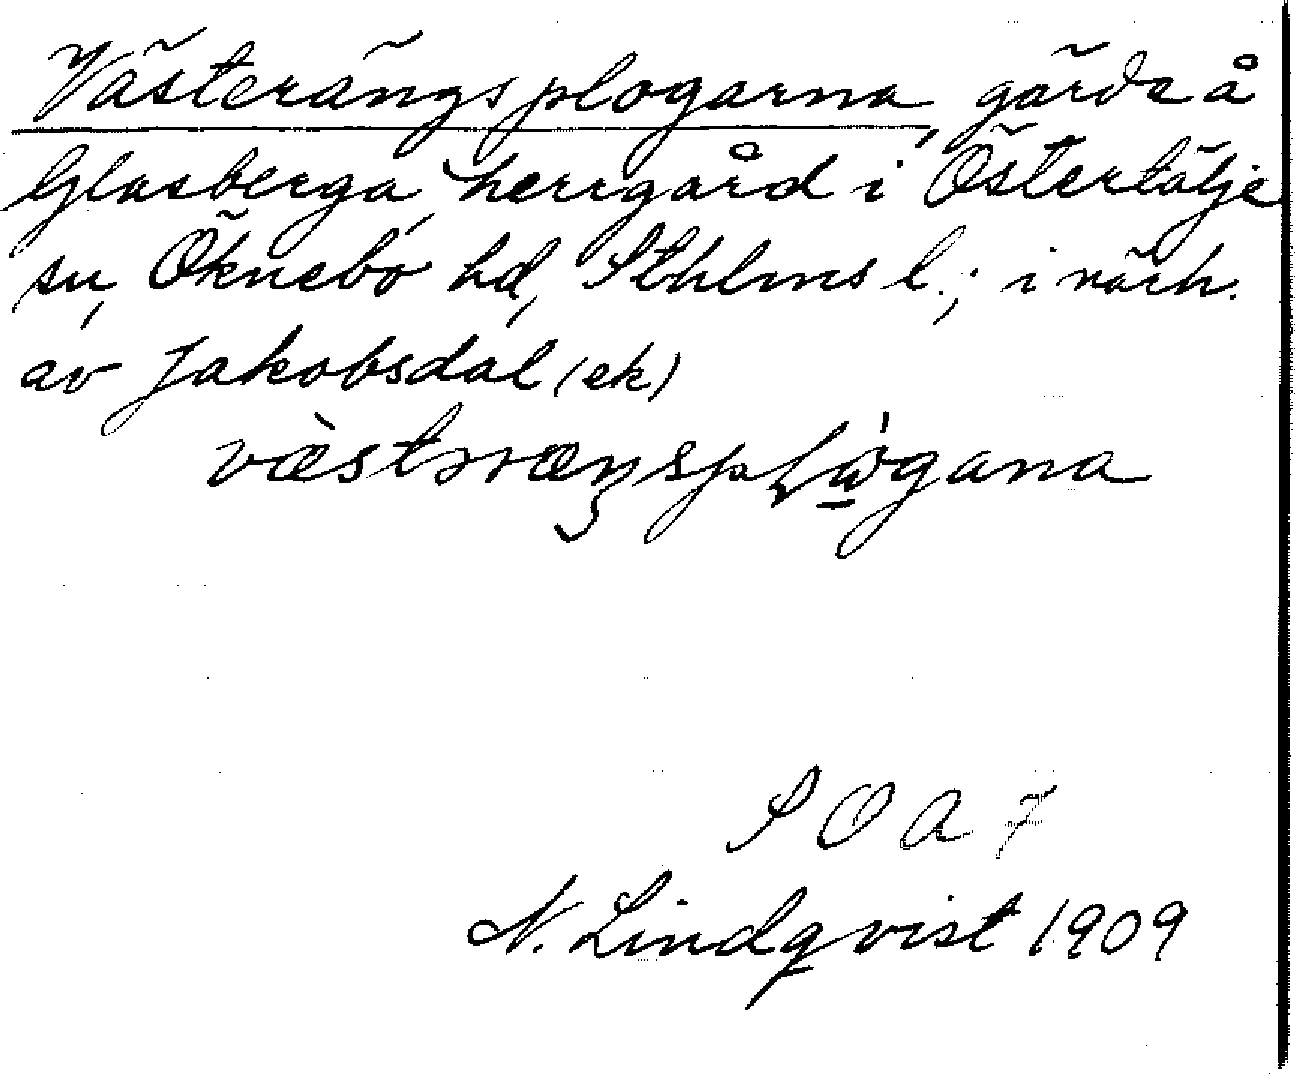 Västerängsplogarna, gärde å
Glasberga, herrgård i Östertälje
sn, Öknebo hd, Sthlms l.; i närh.
av Jakobsdal (ek)
SOA 7
N. Lindqvist 1909